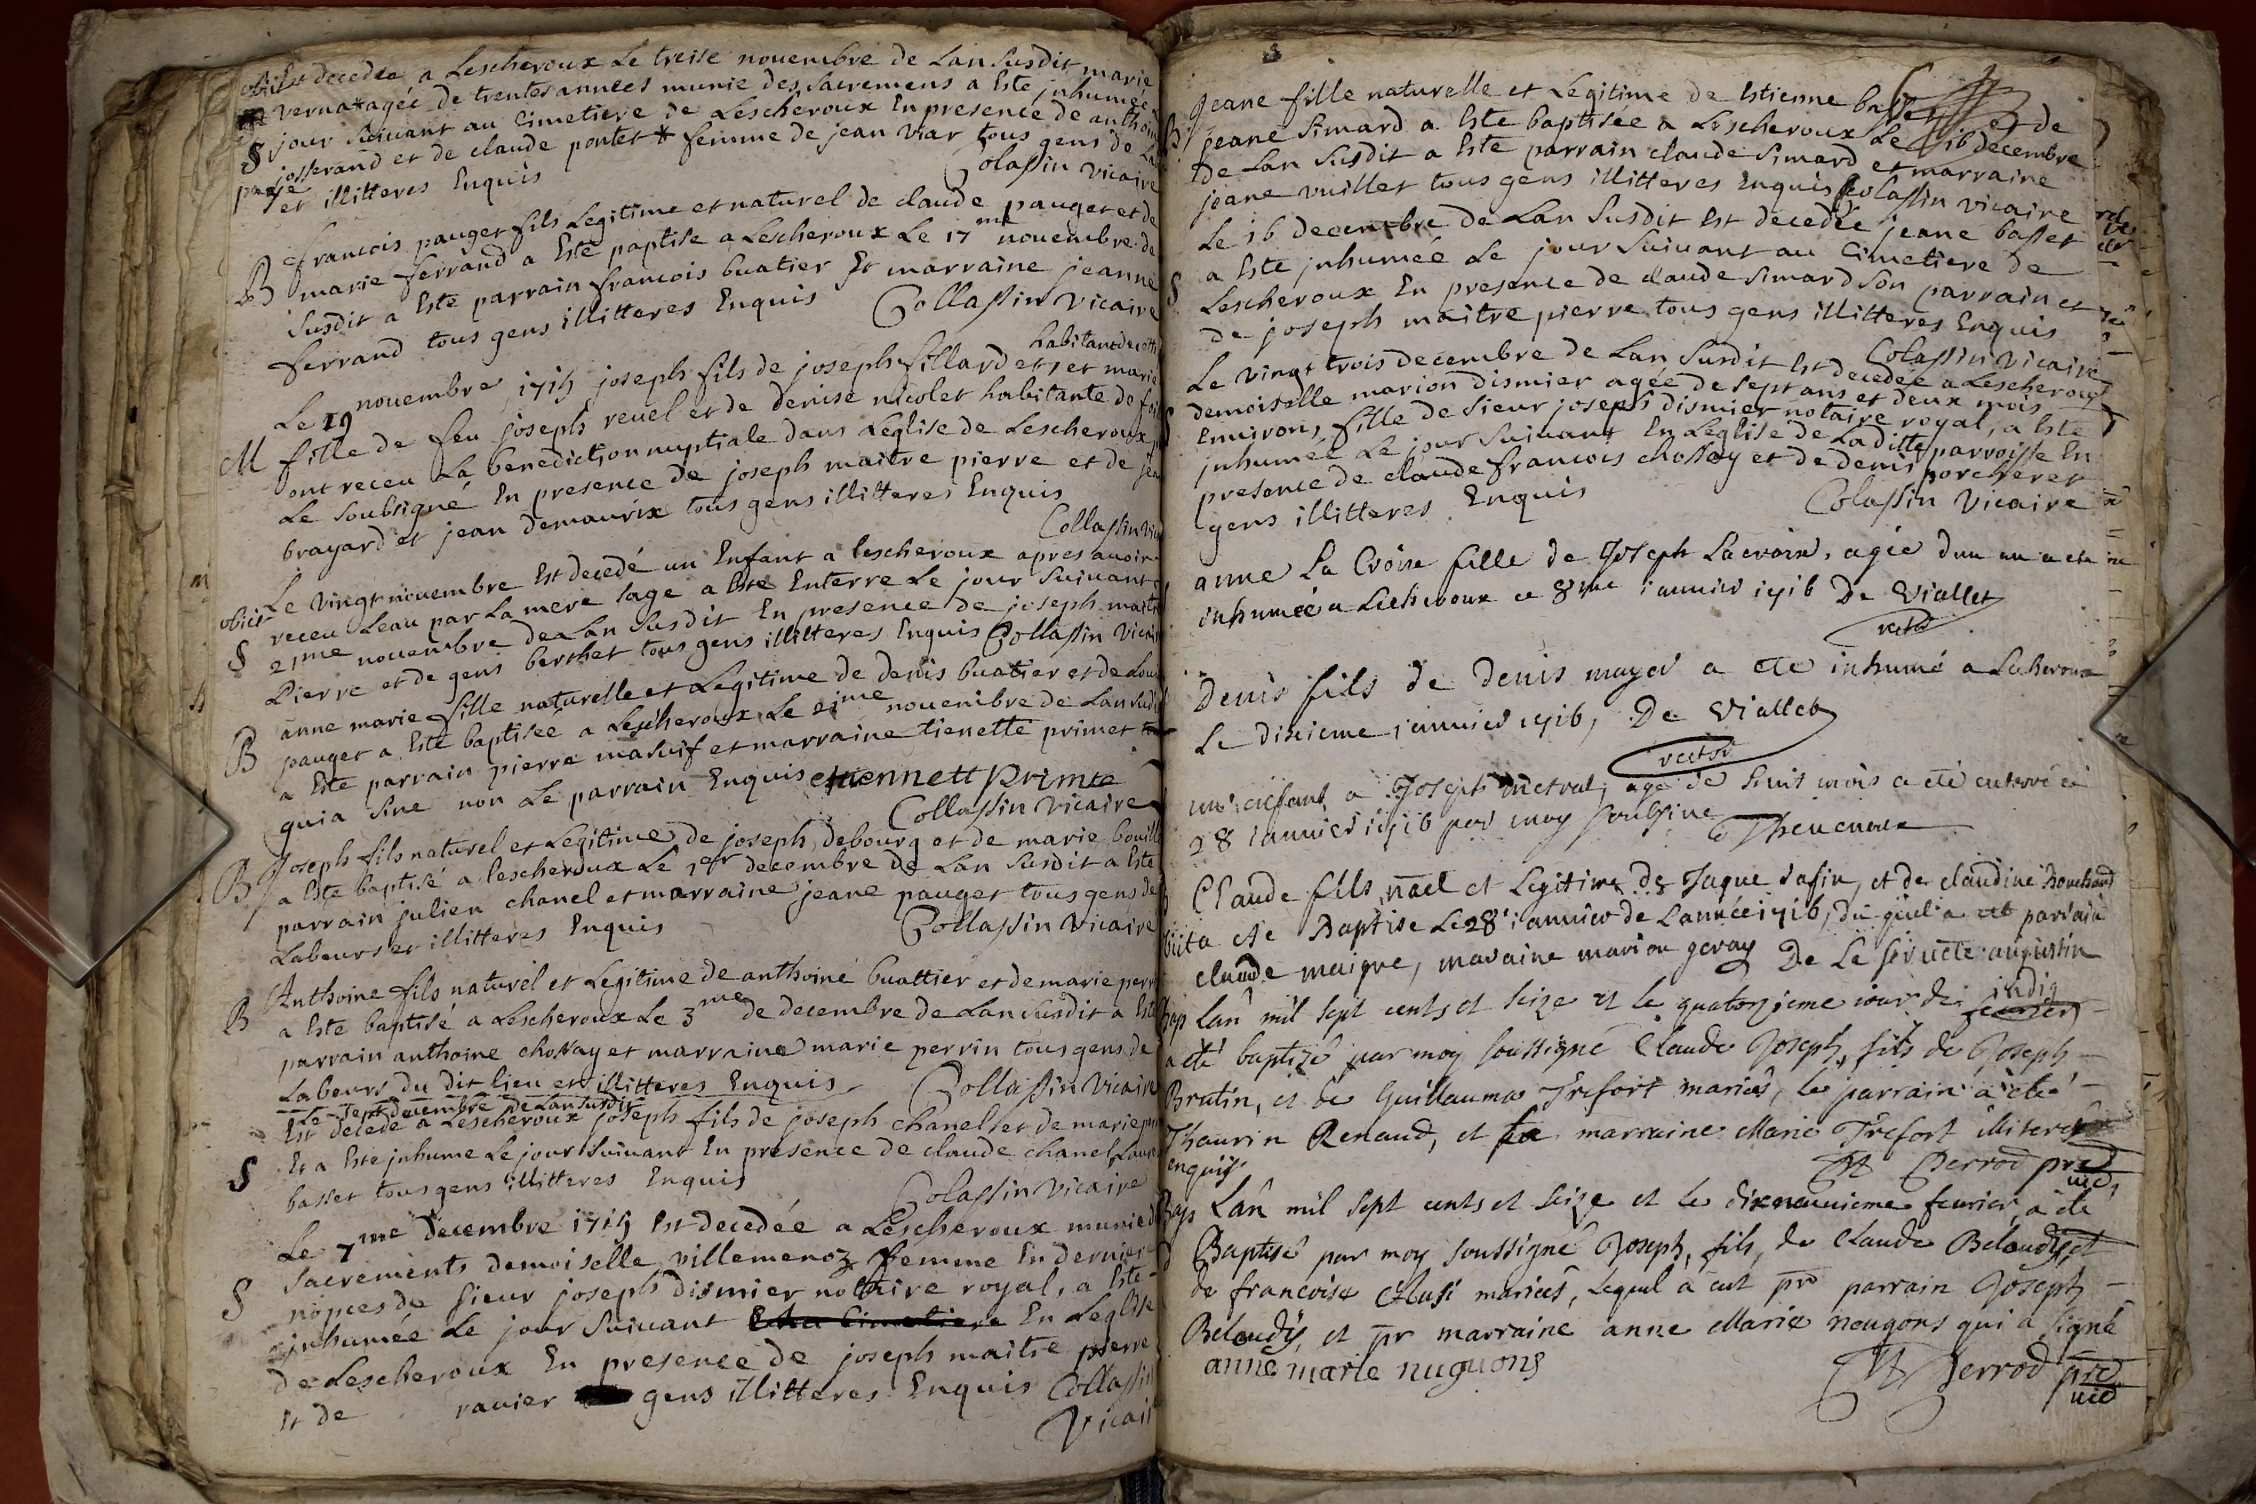 obiit Est decedéé a Lescheroux Le treise nouembre de Lan Susdit marie
vernat agéé de trentes années munie des Sacremens a Esté jnhuméé
S jour Suiuant au Cimetiere de Lescheroux En presence de antho
josserand et de claude pontet * femme de jean viar tous gens de La
et illitteres Enquis Colassin vicaire
francois pauget fils Legitime et naturel de claude pauget et de
B marie ferrand a Esté paptise a Lescheroux Le 17me nouembre de
Susdit a Esté parrain francois buatier Et marraine jeanne
ferrand tous gens illitteres Enquis Collassin vicaire
habitant de cette
Le 19 nouembre 1715 joseph fils de joseph fillardet et marie
M fille de feu joseph reuel et de denise nicolet habitante de
ont receu La benediction nuptiale dans Leglise de Lescheroux
Le Soubsigné En presence de joseph maitre pierre et de
brayard et jean demaurix tous gens illitteres Enquis
Collassin vic
Le vingt nouembre Est decedé un Enfant a lescheroux apres auoir
obiit receu Leau par La mere sage a Esté Enterre Le jour Suiuant
S 21me nouembre de Lan Susdit En presence de joseph maitre
Pierre et de gens berthet tous gens illitteres Enquis Collassin vicair
anne marie fille naturelle et Legitime de denis buatier et de Lou
B pauget a Esté baptiséé a Lescheroux Le 21me nouembre de Lan Susdit
a Esté parrain pierre massif et marraine tienette primet
quia sine non Le parrain Enquis etiennett primte
Collassin vicaire
B Joseph fils naturel et Legitime de joseph debourg et de marie bouill
a Esté baptisé a lescheroux Le 1er decembre de Lan Susdit a Esté
parrain julien chanel et marraine jeane pauget tous gens de
Labeurs et illitteres Enquis Collassin vicaire
Anthoine fils naturel et Legitime de anthoine buattier et de marie perr
B a Esté baptisé a Lescheroux Le 3me de decembre de Lan Susdit a Esté
parrain anthoine chossay et marraine marie perrin tous gens de
Labeurs du dit lieu et illitteres Enquis Collassin vicaire
Le Sept decembre de Lan Susdit
Est decedé a Lescheroux joseph fils de joseph chanel et de marie
S Et a Esté jnhume Le jour Suiuant En presence de claude chanel
basset tous gens illitteres Enquis Colassin vicaire
Le 7me decembre 1715 Est decedéé a Lescheroux munie d
Sacrements demoiselle villemenoz femme En dernier
S nopces de Sieur joseph dismier notaire royal, a Esté
jnhuméé Le jour Suiuant En Leglise
de Lescheroux En presence de joseph maitre pierre
Et de rauier gens illitteres Enquis Collassin
Vicair
Jeane fille naturelle et Legitime de Estienne basset et de
B jeane Simard a Esté baptiséé a Lescheroux Le 16 decembre
de Lan Susdit a Esté parrain claude Simard et marraine
jeane vuillet tous gens illitteres Enquis Colassin vicaire
Le 16 decembre de Lan Susdit Est decedéé jeane basset
S a Esté jnhuméé Le jour Suiuant au Cimetiere de
Lescheroux En presence de claude Simard Son parrain et
de joseph maitre pierre tous gens illitteres Enquis
Colassin vicaire
Le vingt trois decembre de Lan Susdit Est decedéé a Lescheroux
demoiselle marion dismier agéé de Sept ans et deux mois
Enuiron, fille de Sieur joseph dismier notaire royal, a Esté
jnhuméé Le jour Suiuant En Leglise de La ditte parroisse En
presence de claude francois chossay et de denis porcheret
gens illitteres Enquis Colassin Vicaire
anne La Croix fille de Joseph Lacroix, agéé dun an a eté
inhuméé a Lecheroux ce 8me ianuier 1716 De Viallet
rector
Denis fils de Denis mayer a eté inhumé a Lecheroux
Le dixieme ianuier 1716, De Viallet
rector
un enfant a Joseph metral, agé de huit mois a eté enterré ce
28 ianuier 1716 par moy soubsine Theuenoux
Claude fils nael et Legitime de Jaque Safin, et de claudine Bouchard
a eté Baptise Le 28 ianuier de L année 1716, du quel a eté parrain
claude maigre, maraine marion geray
indig
Bap Lan mil sept cents et seize et le quatorzieme iour de feurier
a eté baptizé par moy soussigne Claude Joseph, fils de Joseph
Brutin, et de Guillauma Trefort mariés, le parrain à eté
Thaurin Renaud, et la marraine Marie Trefort illiterés
enquis Perrod pre
vic
Bap Lan mil sept cents et seize et le dixneuuieme feurier, à eté
Baptisé par moy soussigné Joseph, fils, de Claude Beloudy, et
de francoise Clusi mariés, lequel à eut pr parrain Joseph
Beloudy, et pr marraine anne Marie nougons qui a signé
anne marie nuguons
Perrod pre
vic